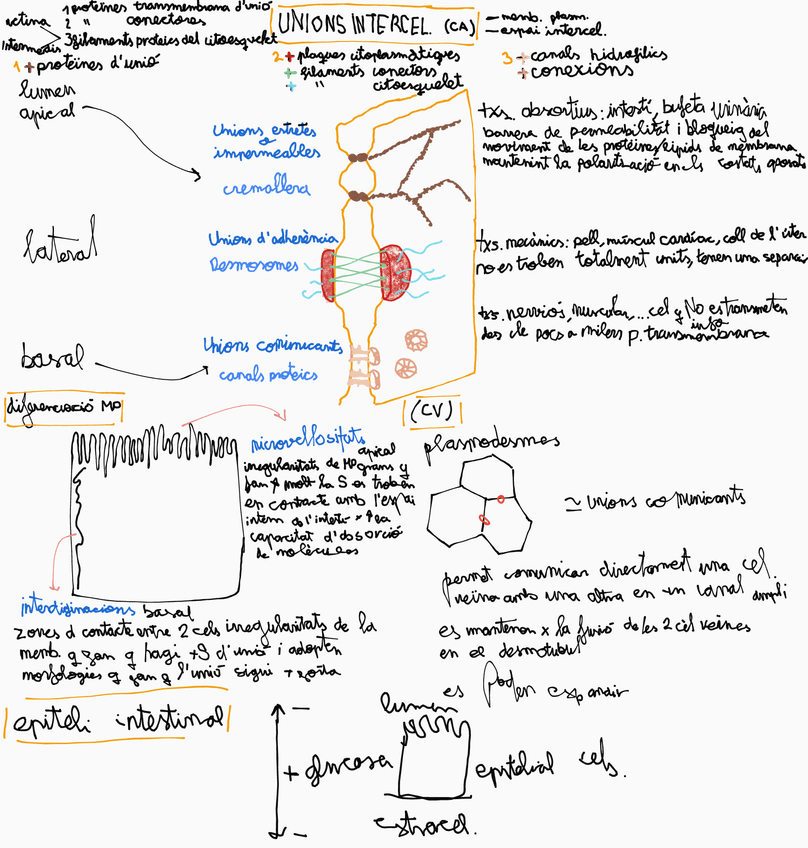 1 proteïnes transmembrana d'unió
actina 2 " conectores
intermedis 3 filaments proteics del citoesquelet
1 + proteïnes d'unió
UNIONS INTERCEL. (CA)
— memb. plasm.
— espai intercel.
2 + plaques citoplasmàtiques
+ filaments conectors
+ " citoesquelet
3 + canals hidrofílics
+ conexions
lumen
apical
Unions estretes
o impermeables
cremallera
txs. absortius: intestí, bufeta urinària
barrera de permeabilitat i bloqueig del
moviment de les proteïnes/lípids de membrana
mantenint la polarització en els costats oposats
lateral
Unions d'adherència
Desmosomes
txs. mecànics: pell, múscul cardíac, coll de l'úter
no es troben totalment units, tenen una separació
basal
Unions comunicants
canals proteics
txs. nerviós, muscular, ... cel q No es transmeten info
des de pocs a milers p. transmembrana
diferenciació MP
(CV)
microvellositats
apical
irregularitats de MP grans q
fan q molt la S es troben
en contacte amb l'espai
intern de l'intestí → ↑ la
capacitat d'absorció
de molècules
plasmodesmes
≃ unions comunicants
permet comunicar directament una cel.
veïna amb una altra en un canal ampli
es mantenen x la fusió de les 2 cèl veïnes
en el desmotúbul
es poden expandir
interdigitacions basal
zones d contacte entre 2 cels irregularitats de la
memb. q fan q hagi +S d'unió i adopten
morfologies q fan q l'unió sigui + forta
epiteli intestinal
—
+ glucosa
—
lumen
epitelial cels.
extracel.